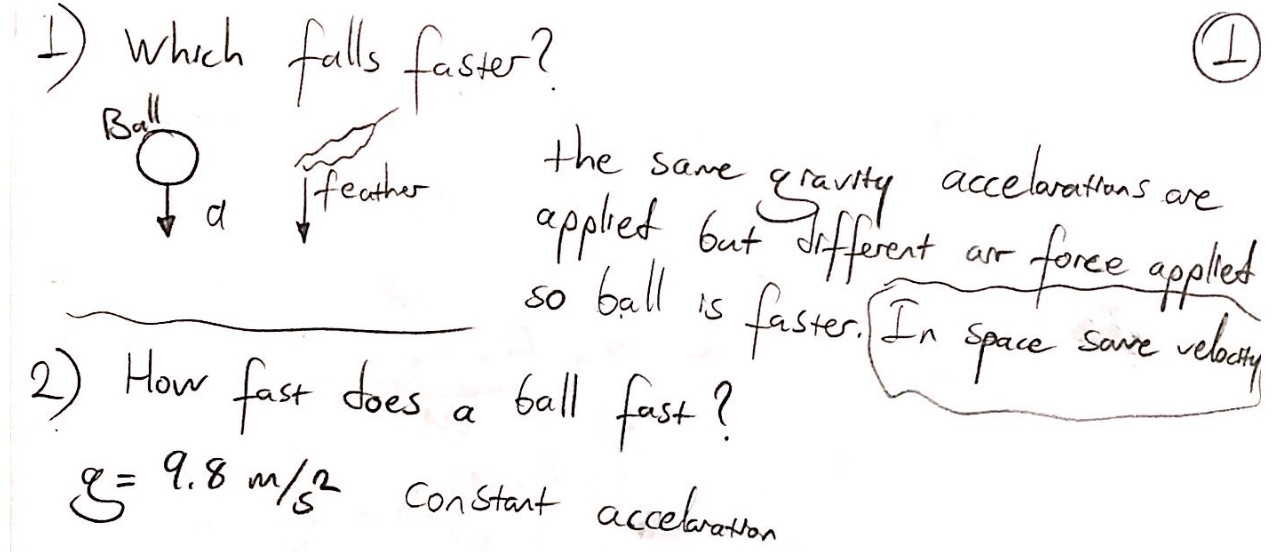 1) Which falls faster?
1
Ball
a
feather
the same gravity accelarations are
applied but different air force applied
so ball is faster. In space same velocity
2) How fast does a ball fast?
g= 9.8 m/s² constant accelaration